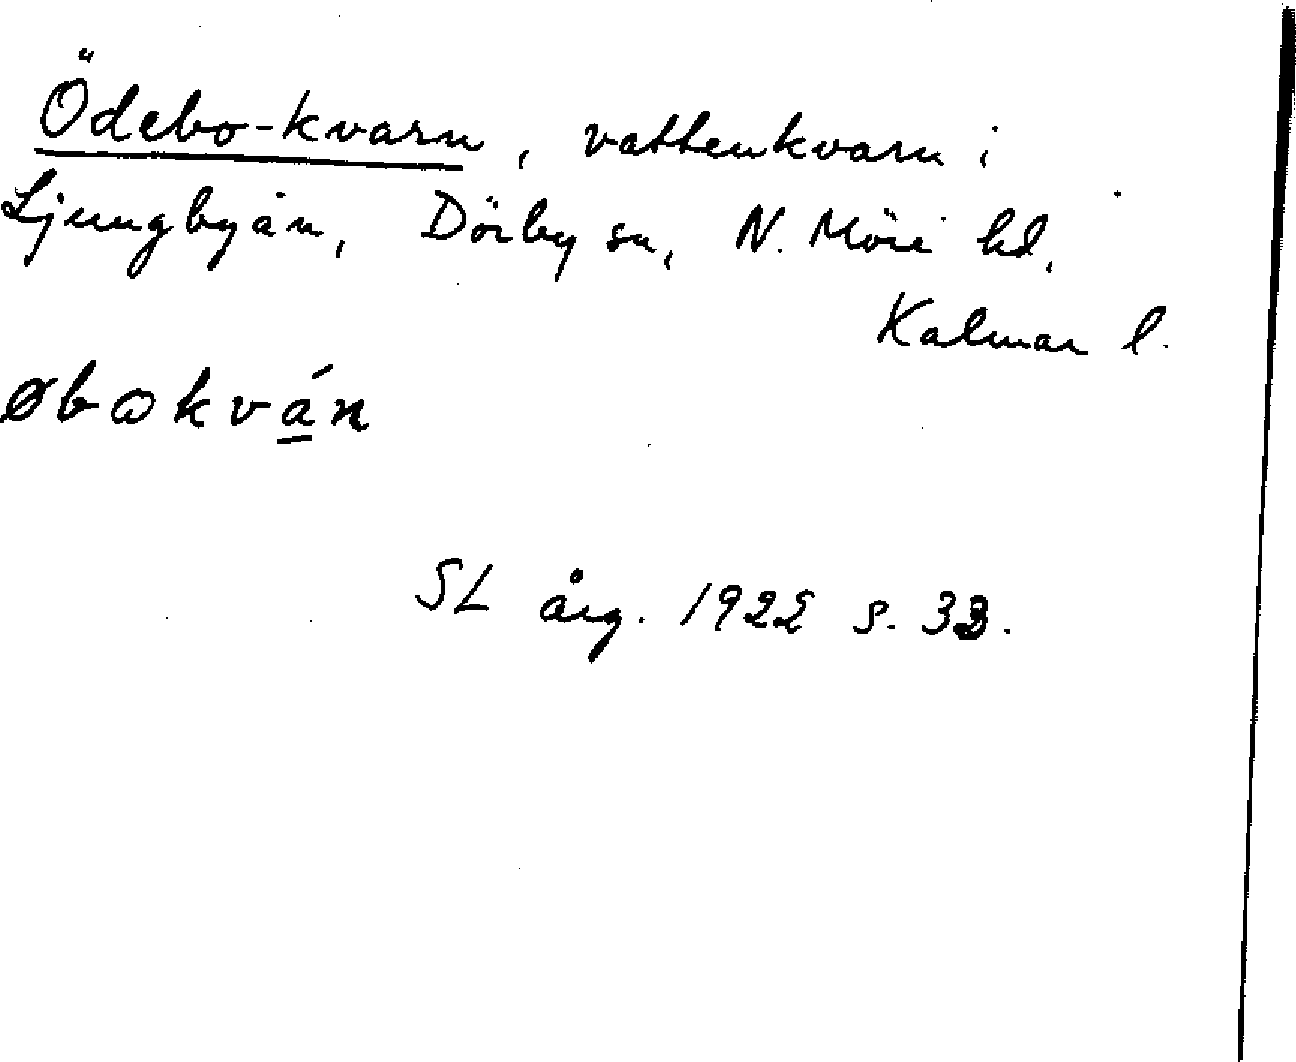 Ödebo-kvarn, vattenkvarn i
Ljungbyån, Dörby sn, N. Möre hd,
Kalmar l.
øbωkván
SL årg. 1922 s. 33.